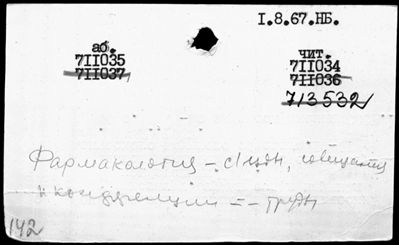 I.8.67.НБ.
аб.
7II035
7II037
чит.
7II034
7II036
713532
Фармакология – съезды, совещания
и конференции –
142